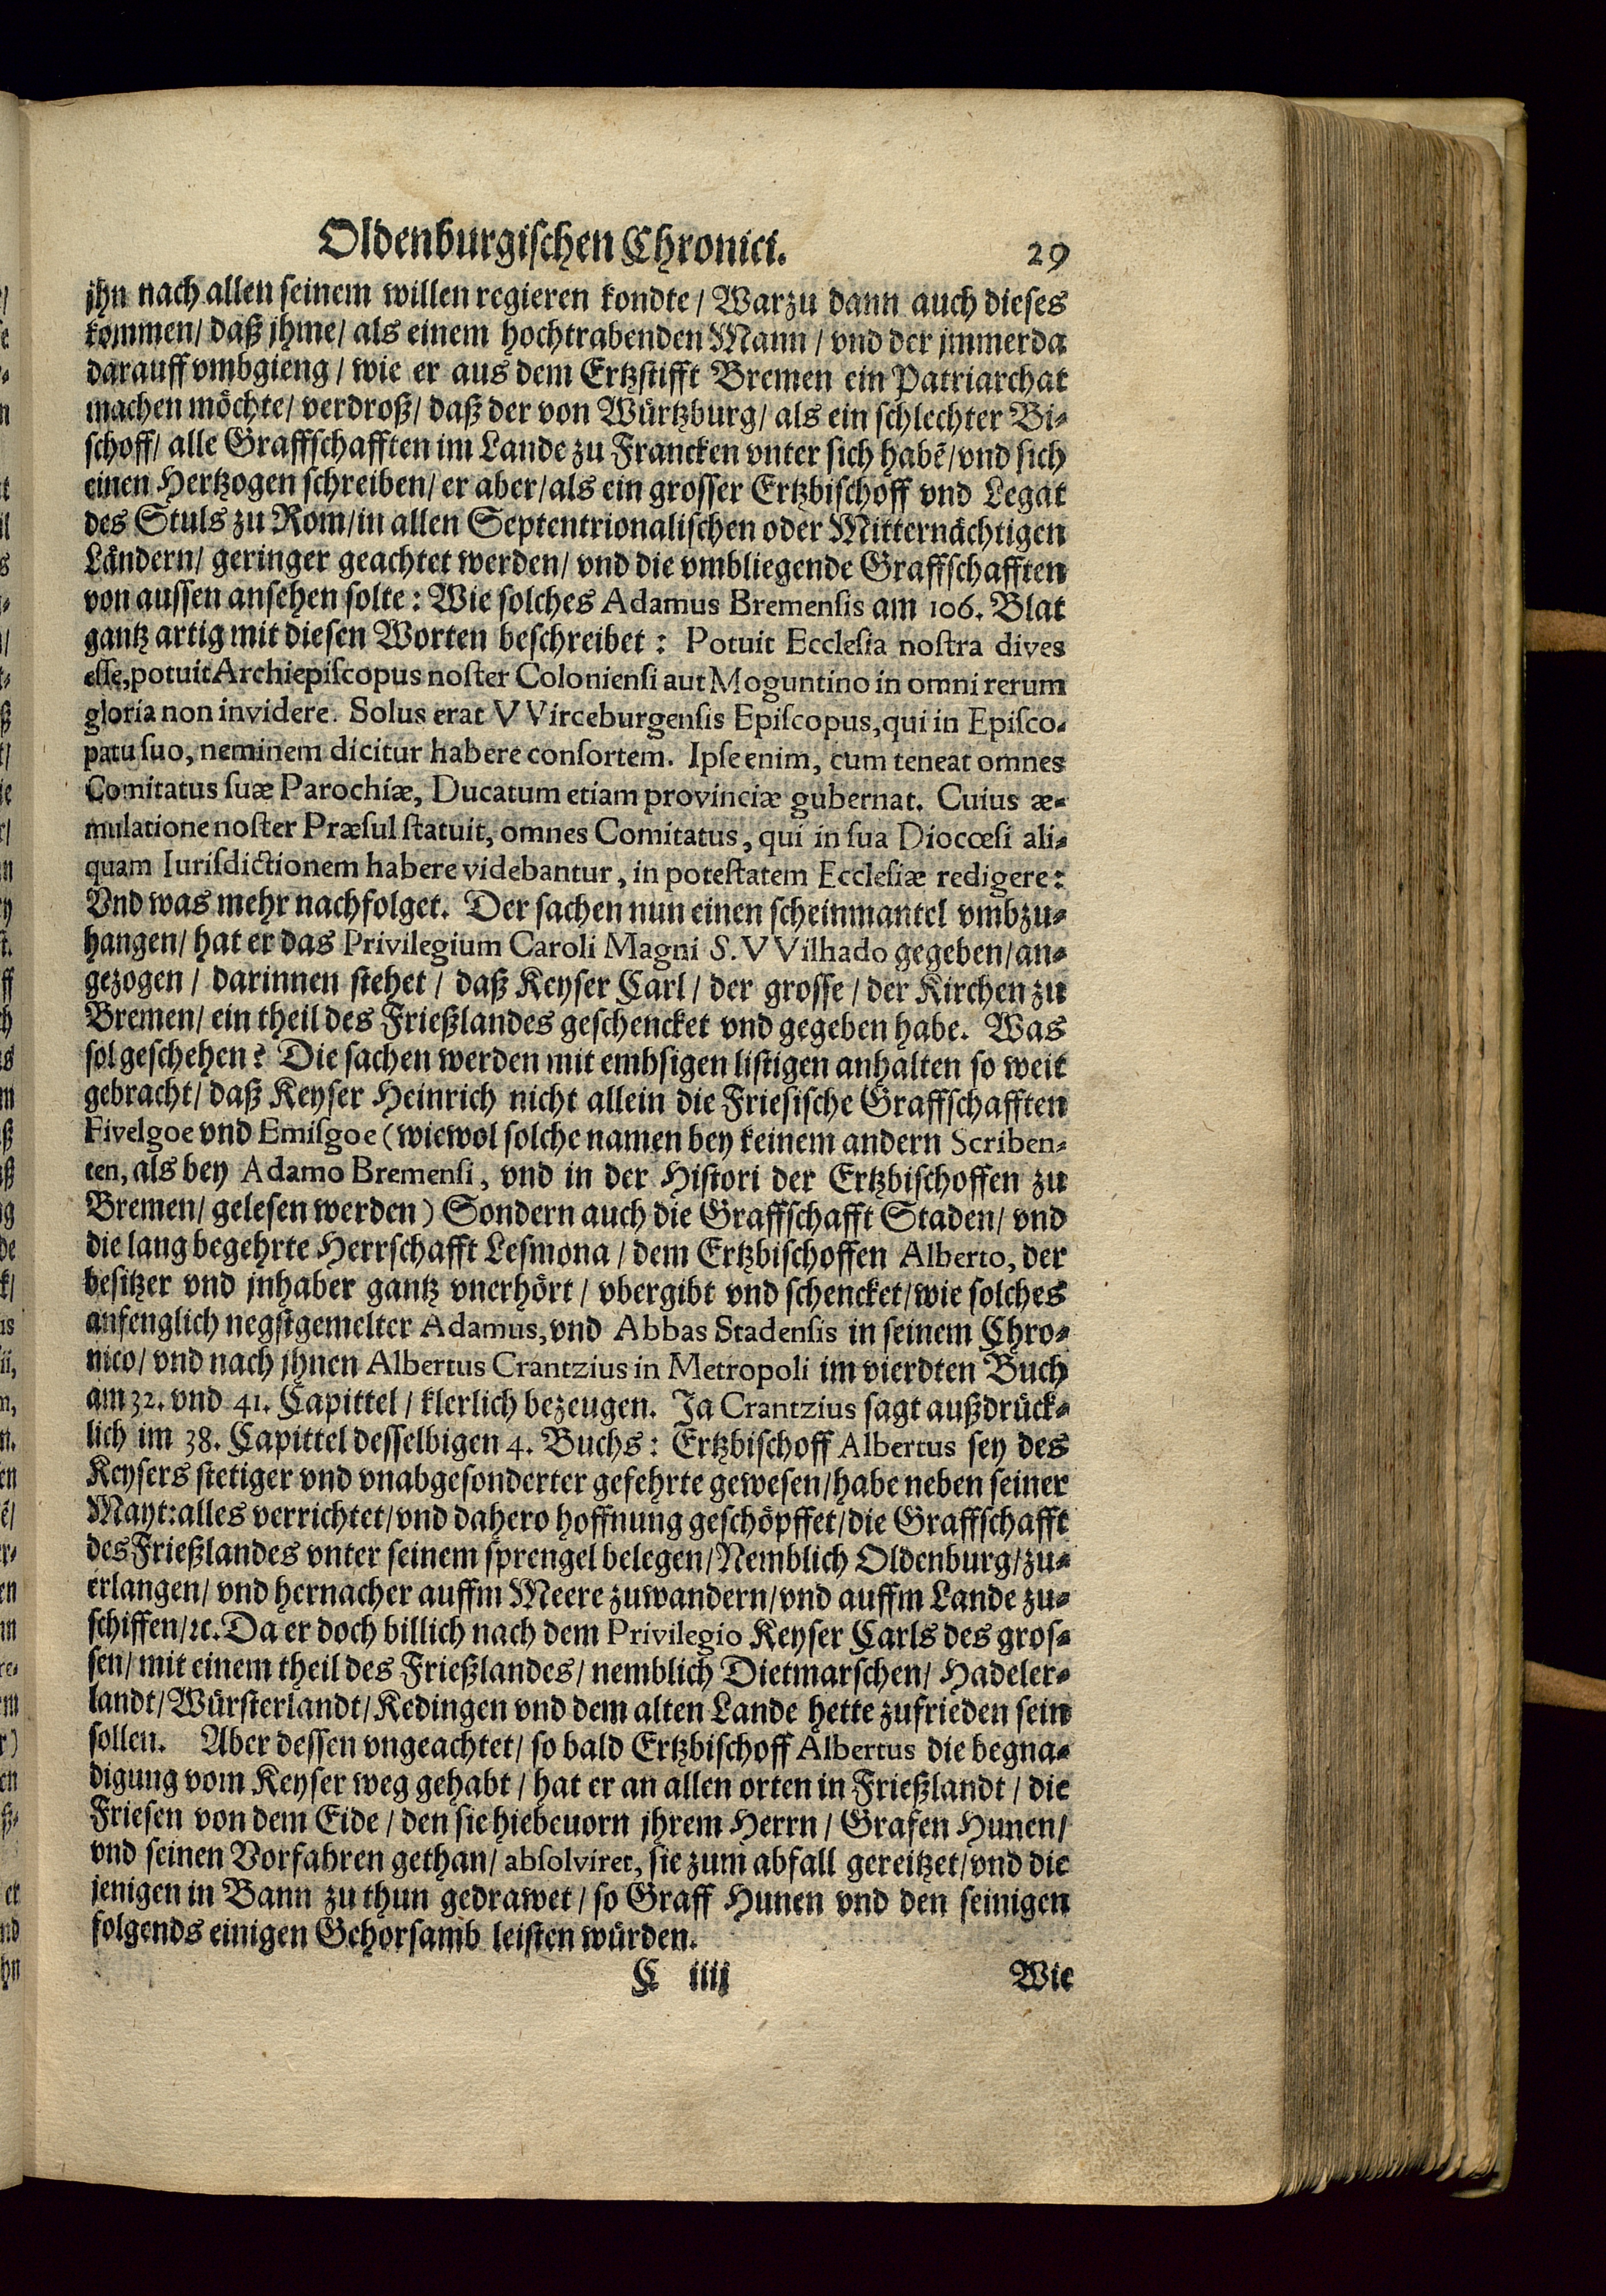 Oldenburgischen Chronici. 29
jhn nach allen seinem willen regieren kondte / Warzu dann auch dieses
kommen / daß jhme / als einem hochtrabenden Mann / vnd der jmmerda
darauff vmbgieng / wie er aus dem Ertzstifft Bremen ein Patriarchat
machen möchte / verdroß / daß der von Würtzburg / als ein schlechter Bi-
schoff / alle Graffschafften im Lande zu Francken vnter sich habẽ / vnd sich
einen Hertzogen schreiben / er aber / als ein grosser Ertzbischoff vnd Legat
des Stuls zu Rom / in allen Septentrionalischen oder Mitternächtigen
Ländern / geringer geachtet werden / vnd die vmbliegende Graffschafften
von aussen ansehen solte: Wie solches Adamus Bremensis am 106. Blat
gantz artig mit diesen Worten beschreibet: Potuit Ecclesia nostra dives
esse, potuit Archiepiscopus noster Coloniensi aut Moguntino in omni rerum
gloria non invidere. Solus erat VVirceburgensis Episcopus, qui in Episco-
patu suo, neminem dicitur habere consortem. Ipse enim, cum teneat omnes
Comitatus suæ Parochiæ, Ducatum etiam provinciæ gubernat. Cuius æ-
mulatione noster Præsul statuit, omnes Comitatus, qui in sua Diocœsi ali-
quam Iurisdictionem habere videbantur, in potestatem Ecclesiæ redigere:
Vnd was mehr nachfolget. Der sachen nun einen scheinmantel vmbzu-
hangen / hat er das Privilegium Caroli Magni S. VVilhado gegeben / an-
gezogen / darinnen stehet / daß Keyser Carl / der grosse / der Kirchen zu
Bremen / ein theil des Frießlandes geschencket vnd gegeben habe. Was
sol geschehen? Die sachen werden mit embsigen listigen anhalten so weit
gebracht / daß Keyser Heinrich nicht allein die Friesische Graffschafften
Fivelgoe vnd Emisgoe (wiewol solche namen bey keinem andern Scriben-
ten, als bey Adamo Bremensi, vnd in der Histori der Ertzbischoffen zu
Bremen / gelesen werden) Sondern auch die Graffschafft Staden / vnd
die lang begehrte Herrschafft Lesmona / dem Ertzbischoffen Alberto, der
besitzer vnd jnhaber gantz vnerhört / vbergibt vnd schencket / wie solches
anfenglich negstgemelter Adamus, vnd Abbas Stadensis in seinem Chro-
nico / vnd nach jhnen Albertus Crantzius in Metropoli im vierdten Buch
am 32. vnd 41. Capittel / klerlich bezeugen. Ja Crantzius sagt außdrück-
lich im 38. Capittel desselbigen 4. Buchs: Ertzbischoff Albertus sey des
Keysers stetiger vnd vnabgesonderter gefehrte gewesen / habe neben seiner
Mayt: alles verrichtet / vnd dahero hoffnung geschöpffet / die Graffschafft
des Frießlandes vnter seinem sprengel belegen / Nemblich Oldenburg / zu-
erlangen / vnd hernacher auffm Meere zuwandern / vnd auffm Lande zu-
schiffen / ꝛc. Da er doch billich nach dem Privilegio Keyser Carls des gros-
sen / mit einem theil des Frießlandes / nemblich Dietmarschen / Hadeler-
landt / Würsterlandt / Kedingen vnd dem alten Lande hette zufrieden sein
sollen. Aber dessen vngeachtet / so bald Ertzbischoff Albertus die begna-
digung vom Keyser weg gehabt / hat er an allen orten in Frießlandt / die
Friesen von dem Eide / den sie hiebeuorn jhrem Herrn / Grafen Hunen /
vnd seinen Vorfahren gethan / absolviret, sie zum abfall gereitzet / vnd die
jenigen in Bann zu thun gedrawet / so Graff Hunen vnd den seinigen
folgends einigen Gehorsamb leisten würden.
C iiij Wie